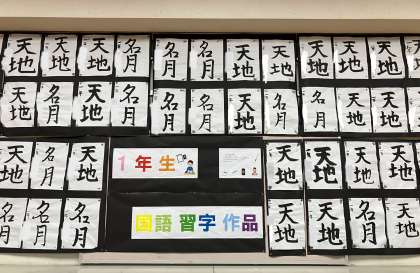 天地
天地
天地
名月
名月
名月
天地
天地
天地
天地
天地
天地
名月
天地
名月
名月
名月
天地
名月
名月
天地
天地
天地
名月
天地
1年生
国語 習字 作品
天地
天地
名月
天地
名月
名月
名月
天地
天地
名月
天地